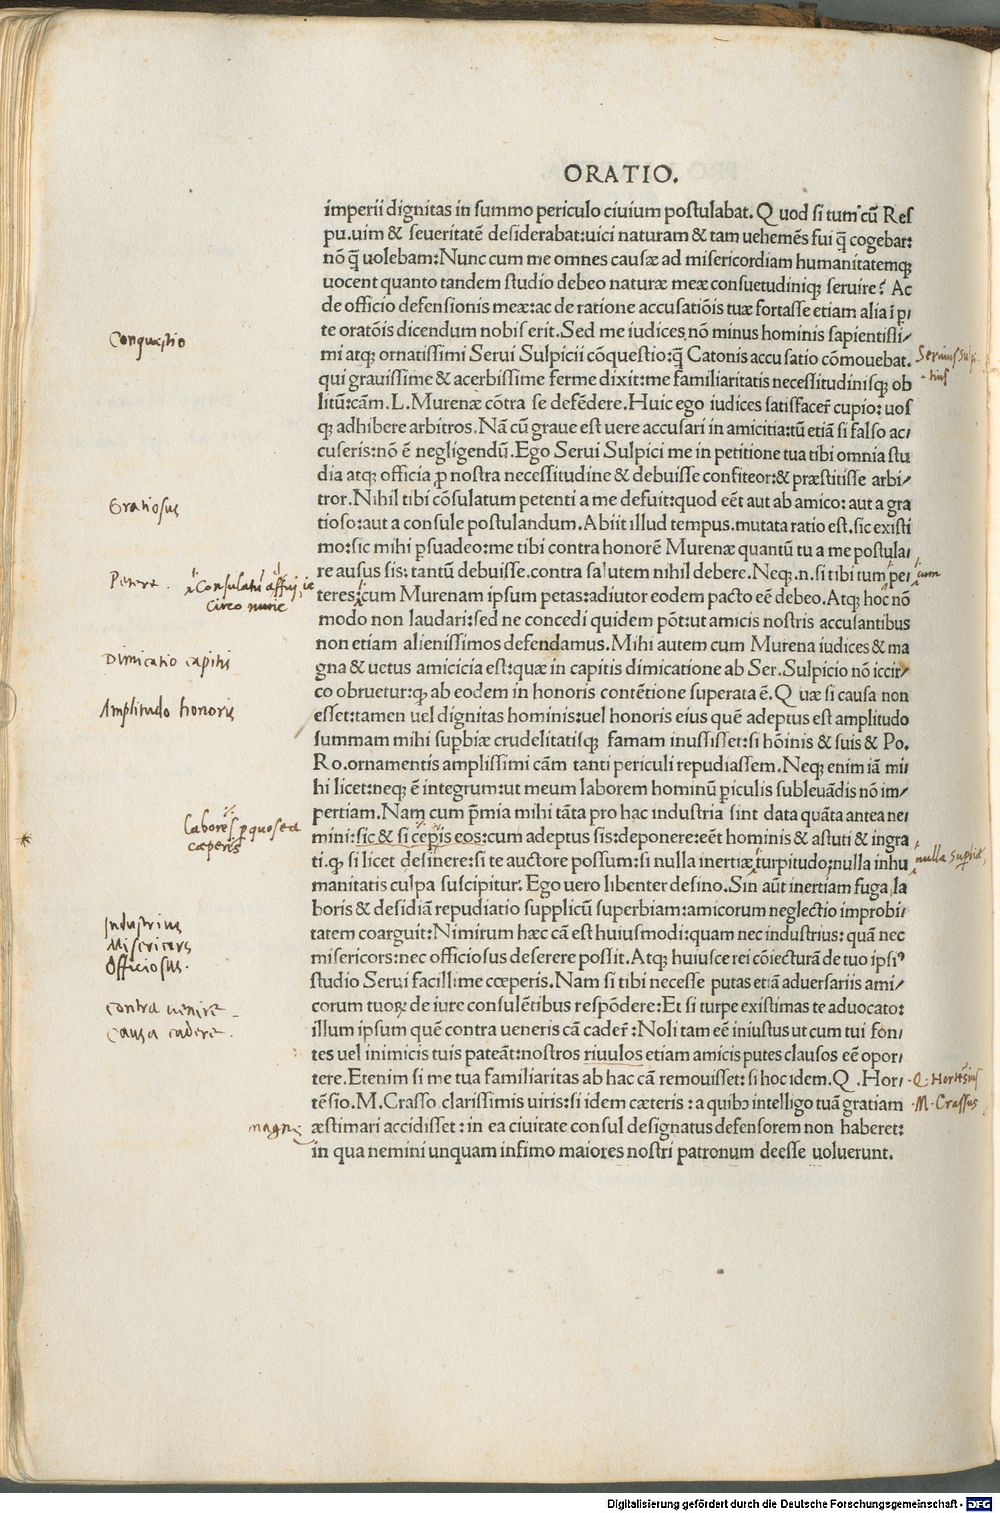 ORATIO.
imperii dignitas in summo periculo ciuium postulabat. Quod si tum cū Res
pu.uim & seueritatē desiderabat:uici naturam & tam uehemēs fui q̄ cogebar:
nō q̄ uolebam:Nunc cum me omnes causæ ad misericordiam humanitatemqꝫ
uocent quanto tandem studio debeo naturæ meæ consuetudiniqꝫ seruire? Ac
de officio defensionis meæ:ac de ratione accusatiōis tuæ fortasse etiam alia ī p
te oratōis dicendum nobis erit. Sed me iudices nō minus hominis sapientissi/
Conquæstio
mi atqꝫ ornatissimi Serui Sulpicii cōquestio:q̄ Catonis accusatio cōmouebat.
Seruius Sulpi-
-tius
qui grauissime & acerbissime ferme dixit:me familiaritatis necessitudinisqꝫ ob
litū:cām.L.Murenæ cōtra se defēdere.Huic ego iudices satisfacer̄ cupio:uos
qꝫ adhibere arbitros.Nā cū graue est uere accusari in amicitia:tū etiā si falso ac/
cuseris:nō ē negligendū.Ego Serui Sulpici me in petitione tua tibi omnia stu
dia atqꝫ officia ꝓ nostra necessitudine & debuisse confiteor:& præstitisse arbi/
tror.Nihil tibi cōsulatum petenti a me defuit:quod eēt aut ab amico:aut a gra
Gratiosus
tioso:aut a consule postulandum.Abiit illud tempus.mutata ratio est.sic existi
mo:sic mihi ꝑsuadeo:me tibi contra honorē Murenæ quantū tu a me postula/
re ausus sis:tantū debuisse.contra salutem nihil debere.Neqꝫ.n.si tibi tum pe/
cum
Petere.
Consulatū affui, ie
circo nunc
teres:cum Murenam ipsum petas:adiutor eodem pacto eē debeo.Atqꝫ hoc nō
modo non laudari:sed ne concedi quidem pōt:ut amicis nostris accusantibus
non etiam alienissimos defendamus.Mihi autem cum Murena iudices & ma
Dimicatio capitis
gna & uetus amicicia est:quæ in capitis dimicatione ab Ser.Sulpicio nō iccir/
co obruetur:qꝫ ab eodem in honoris contētione superata ē.Quæ si causa non
Amplitudo honoris
esset:tamen uel dignitas hominis:uel honoris eius quē adeptus est amplitudo
summam mihi supbiæ crudelitatisqꝫ famam inussisset:si hōinis & suis & Po.
Ro.ornamentis amplissimi cām tanti periculi repudiassem.Neqꝫ enim iā mi/
hi licet:neqꝫ ē integrum:ut meum laborem hominū ꝑiculis subleuādis nō im/
pertiam.Nam cum p̄mia mihi tāta pro hac industria sint data quāta antea ne/
labores ꝑ quos ea
cœperis
mini:sic & si cepis eos:cum adeptus sis:deponere:eēt hominis & astuti & ingra
ti.qꝫ si licet desinere:si te auctore possum:si nulla inertiæ turpitudo:nulla inhu
nulla supbiæ
manitatis culpa suscipitur: Ego uero libenter desino.Sin aūt inertiam fuga la
boris & desidiā repudiatio supplicū superbiam:amicorum neglectio improbi/
Industrius
tatem coarguit:Nimirum hæc cā est huiusmodi:quam nec industrius: quā nec
Misericors
Officiosus.
misericors:nec officiosus deserere possit.Atqꝫ huiusce rei cōiecturā de tuo ipsiꝰ
studio Serui facillime cœperis.Nam si tibi necesse putas etiā aduersariis ami/
contra uenire
corum tuoꝝ de iure consulētibus respōdere:Et si turpe existimas te aduocato:
causa cadere.
illum ipsum quē contra ueneris cā cader̄:Noli tam eē iniustus ut cum tui fon/
tes uel inimicis tuis pateāt:nostros riuulos etiam amicis putes clausos eē opor/
tere.Etenim si me tua familiaritas ab hac cā remouisset:si hoc idem.Q.Hor/
Q. Hortēsius
tēsio.M.Crasso clarissimis uiris:si idem cæteris:a quibꝰ intelligo tuā gratiam
M. Crassus
magni
æstimari accidisset:in ea ciuitate consul designatus defensorem non haberet:
in qua nemini unquam infimo maiores nostri patronum deesse uoluerunt.
Digitalisierung gefördert durch die Deutsche Forschungsgemeinschaft - DFG